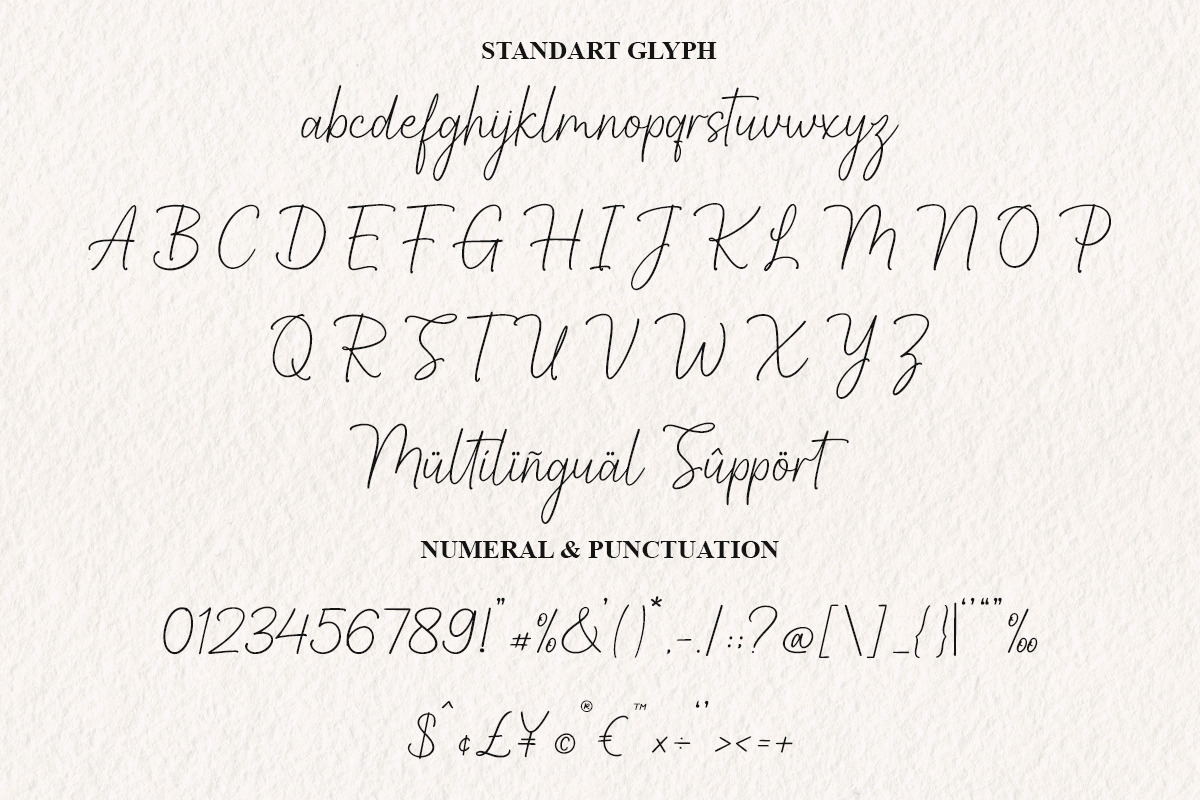 STANDART GLYPH
abcdefghijklmnopqrstuvwxyz
A B C D E F G H I J K L M N O P
Q R S T U V W X Y Z
Mültilïñguäl Sûppört
NUMERAL & PUNCTUATION
0123456789!" #%&'()* ,-./:;?@[\]_{}|‘’“”‰
$^¢£¥©®€™×÷‘’><=+